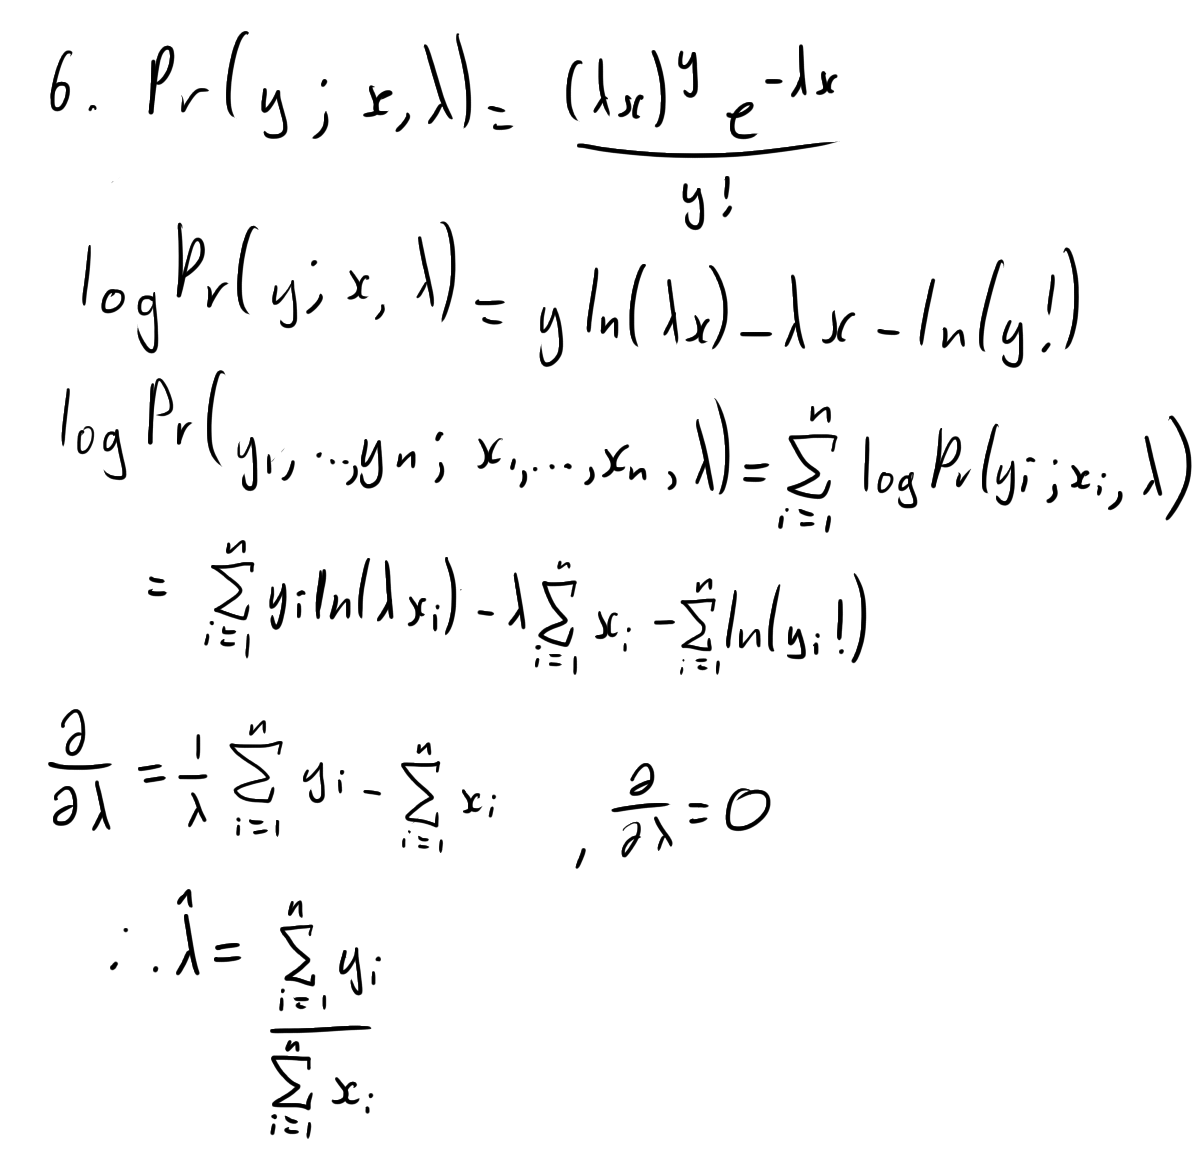 6. Pr(y; x, λ) = (λx)^y e^{-λx} / y!
log Pr(y; x, λ) = y ln(λx) - λx - ln(y!)
log Pr(y₁, ..., yₙ; x₁, ..., xₙ, λ) = ∑_{i=1}^{n} log Pr(yᵢ; xᵢ, λ)
= ∑_{i=1}^{n} yᵢ ln(λxᵢ) - λ ∑_{i=1}^{n} xᵢ - ∑_{i=1}^{n} ln(yᵢ!)
∂/∂λ = 1/λ ∑_{i=1}^{n} yᵢ - ∑_{i=1}^{n} xᵢ , ∂/∂λ = 0
∴ λ̂ = ∑_{i=1}^{n} yᵢ / ∑_{i=1}^{n} xᵢ